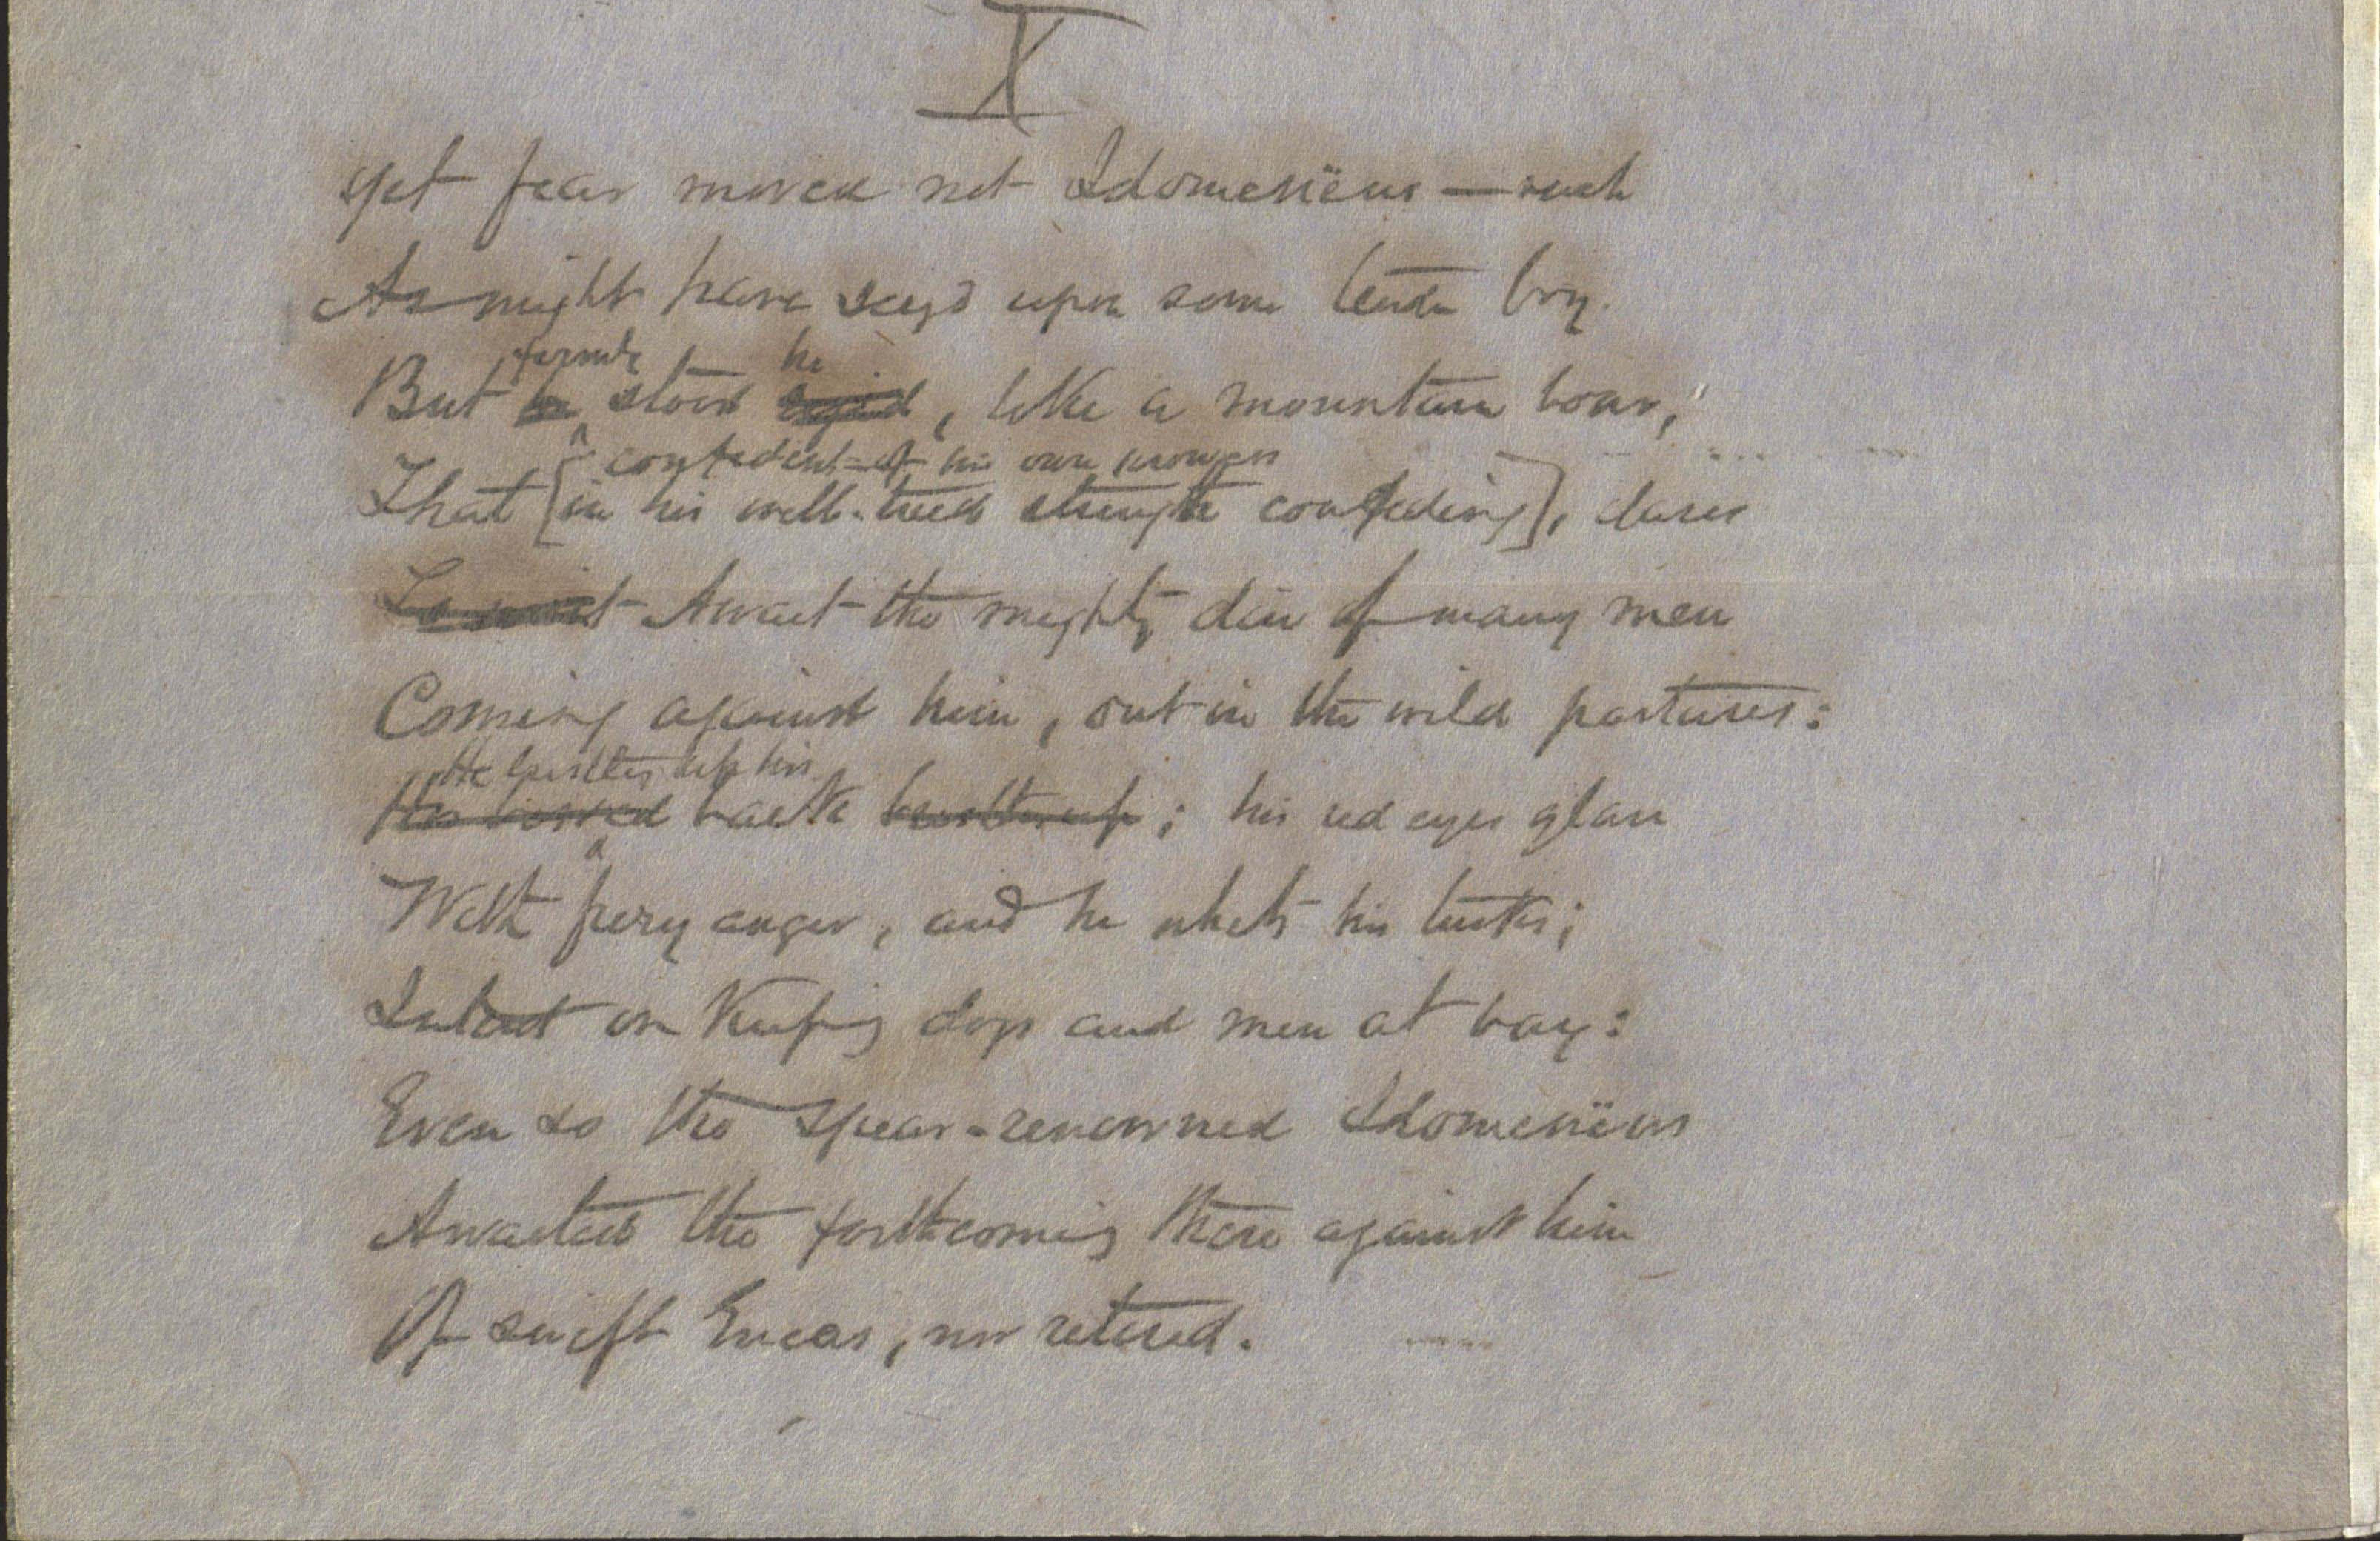 X
Yet fear moved not Idomenëus — such
As might have seiz'd upon some tender boy.
firmly he
But he stood rigid, like a mountain boar,
confident of his own prowess
That [in his well-tried strength confiding], dares
To wait Await the mighty din of many men
Coming against him, out in the wild pastures:
He bristles up his
His back bristles up; his red eyes glare
With fiery anger, and he whets his tusks;
Intent on keeping dogs and men at bay:
Even so the spear-renowned Idomenëus
Awaited the forthcoming there against him
Of swift Eneas, nor retired.